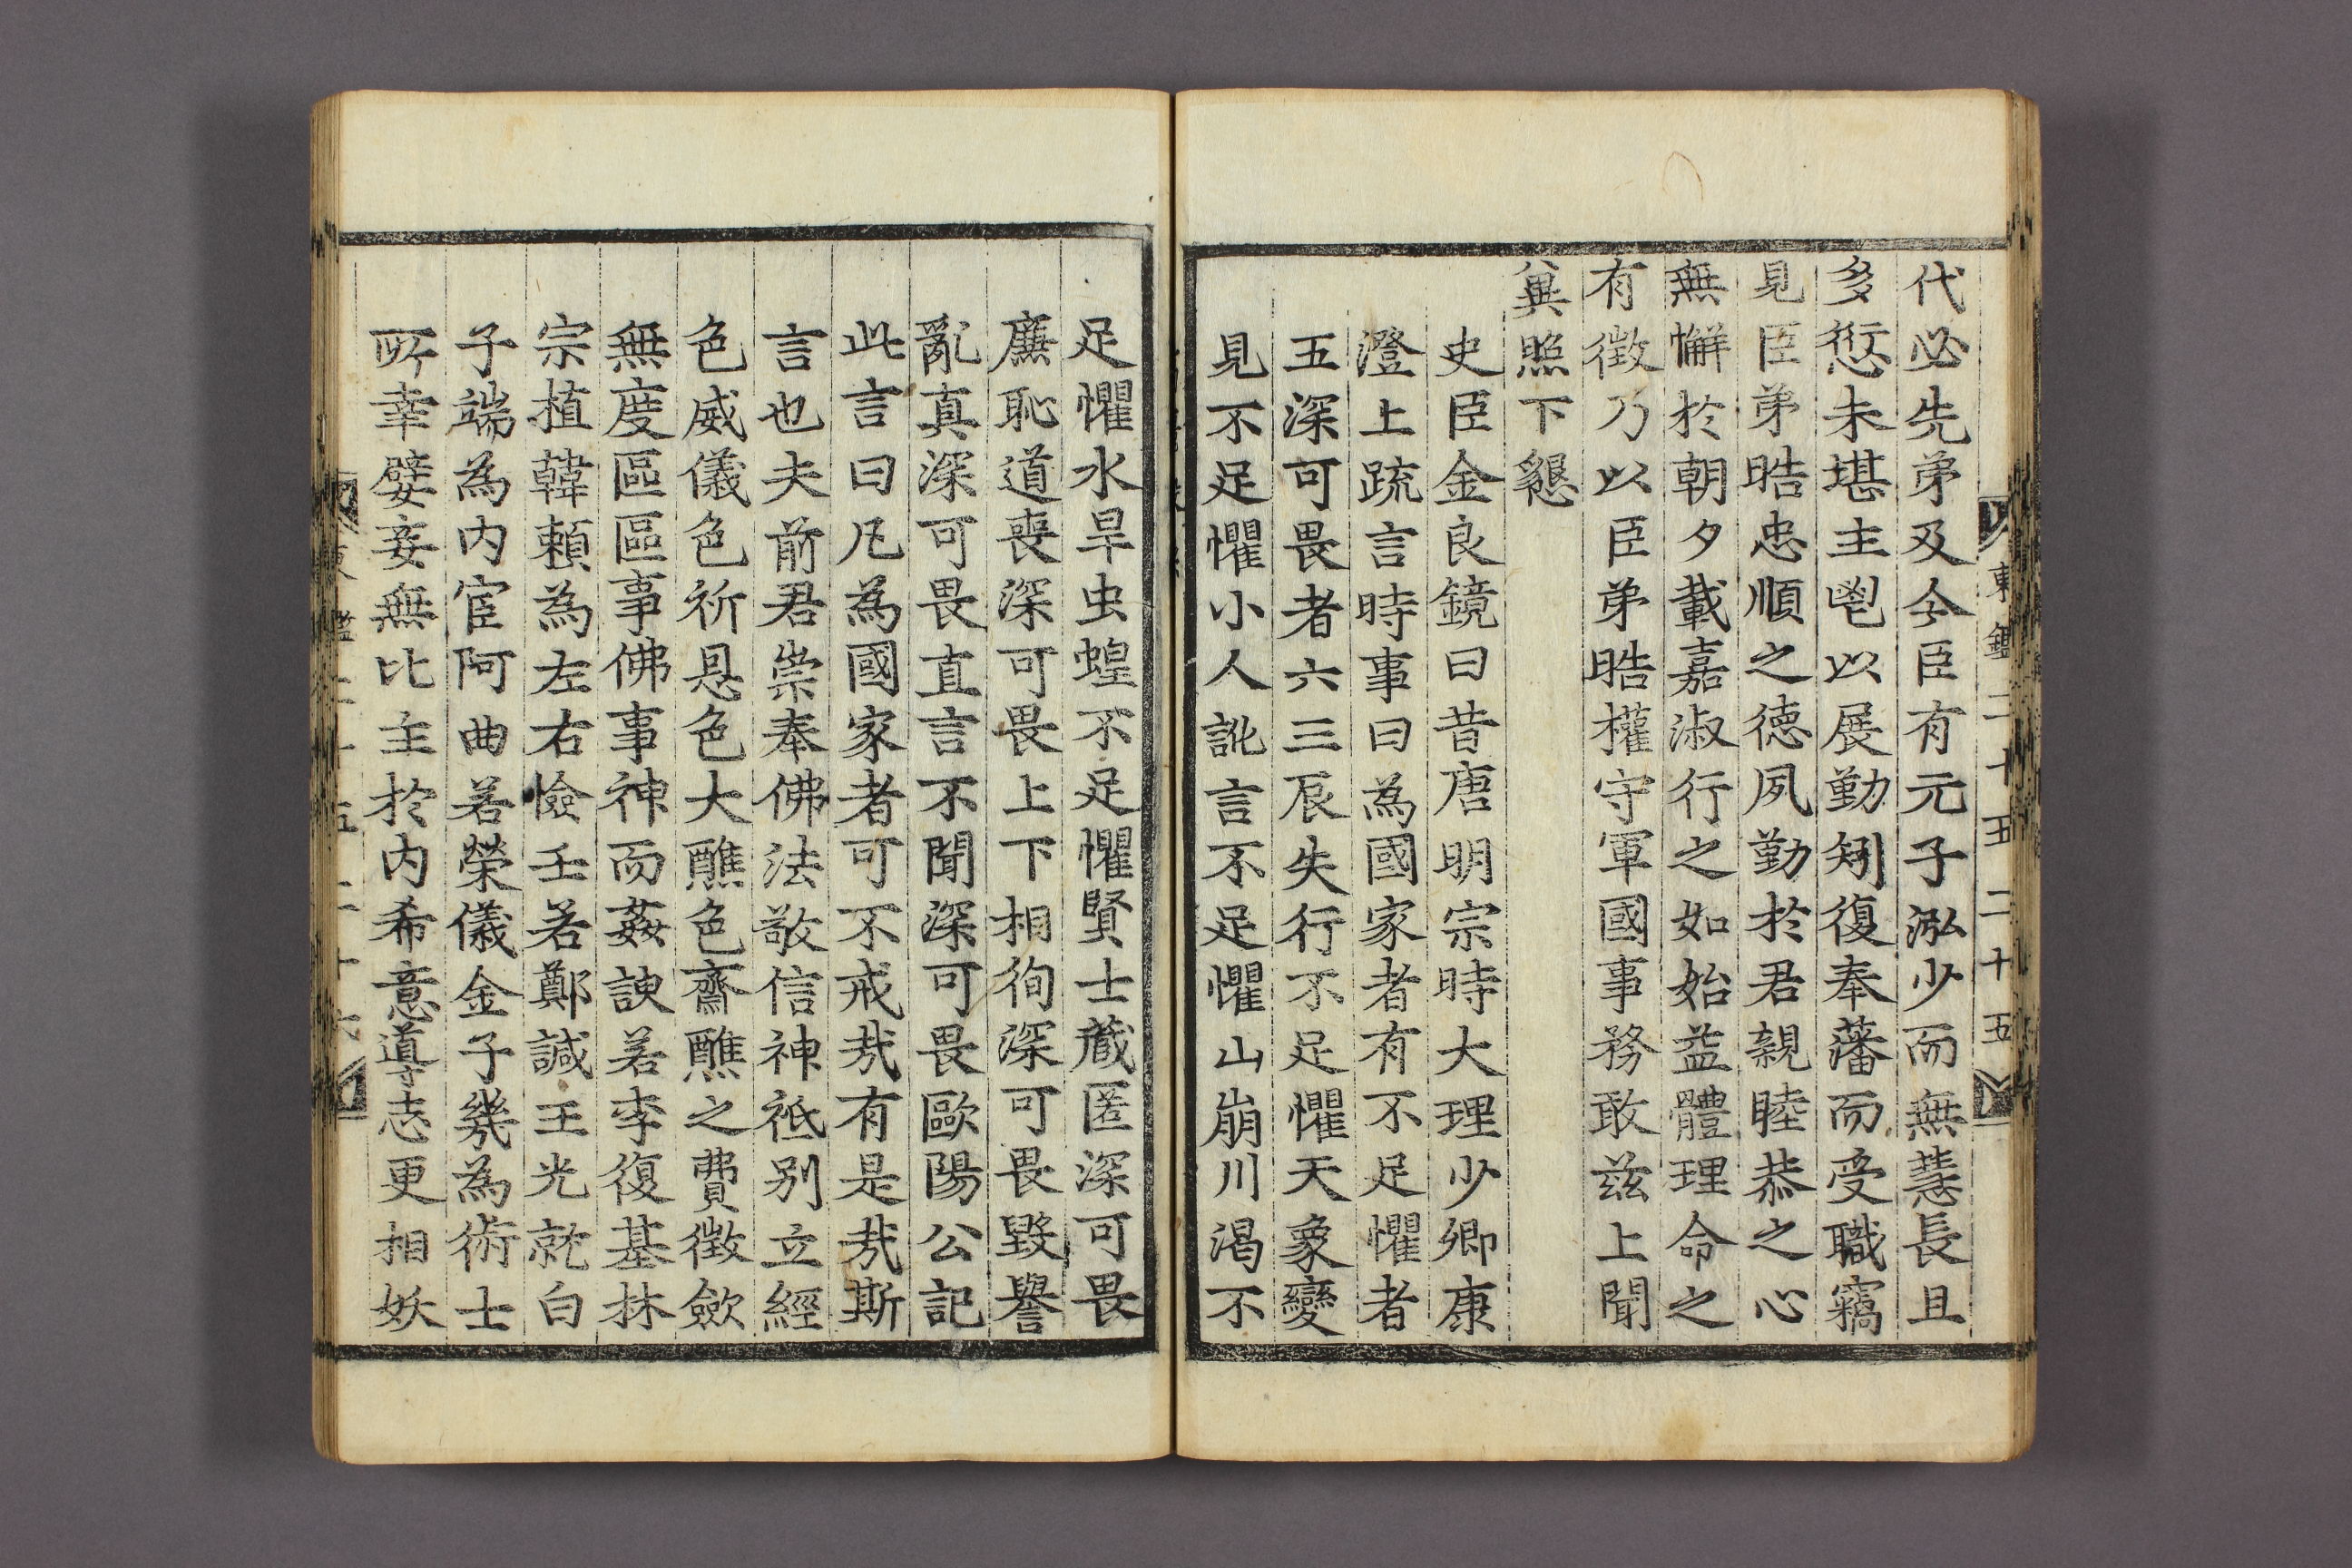 東鑑二十五 二十五
代必先弟及今臣有元子泓少而無慧長且
多愆未堪主鬯以展勤矧復奉藩而受職竊
見臣弟晧忠順之德夙勤於君親睦恭之心
無懈於朝夕載嘉淑行之如始益體理命之
有徵乃以臣弟晧權守軍國事務敢玆上聞
兾照下懇
史臣金良鏡曰昔唐明宗時大理少卿康
澄上䟽言時事曰為國家者有不足懼者
五深可畏者六三辰失行不足懼天象變
見不足懼小人訛言不足懼山崩川渴不
足懼水旱虫蝗不足懼賢士藏匿深可畏
廉恥道喪深可畏上下相徇深可畏毀譽
亂真深可畏直言不聞深可畏歐陽公記
此言曰凡為國家者可不戒㦲有是㦲斯
言也夫前君崇奉佛法敬信神祗別立經
色威儀色祈恩色大醮色齋醮之費徵斂
無度區區事佛事神而姦諛若李復基林
宗植韓賴為左右憸壬若鄭諴王光就白
子端為內宦阿曲若榮儀金子幾為術士
所幸嬖妾無比主於內希意導志更相妖